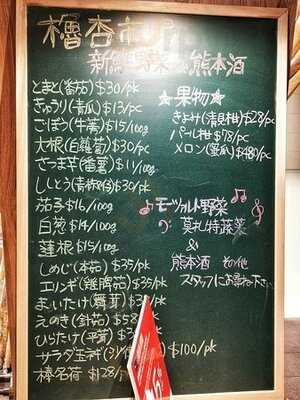 櫓杏市場
新鮮野菜 熊本酒
とまと(番茄)$30/pk
きゅうり(青瓜)$13/pk
ごぼう(牛蒡)$15/100g
大根(白蘿蔔)$30/pk
さつま芋(番薯)$11/100g
ししとう(青椒仔)$30/pk
茄子$16/100g
白葱$14/100g
蓮根$15/100g
しめじ(本菇)$35/pk
エリンギ(雞脾菇)$35/pk
まいたけ(舞茸)$3
えのき(針菇)$58
ひらたけ(平茸)
サラダ玉ネギ $100/pk
榛名荷 $128/
★果物★
きよみ(清見柑)$28/pk
パール柑$78/pk
メロン(蜜瓜)$480/pk
モーツァルト野菜
莫札特蔬菜
&
熊本酒 その他
スタッフにお尋ね下さい